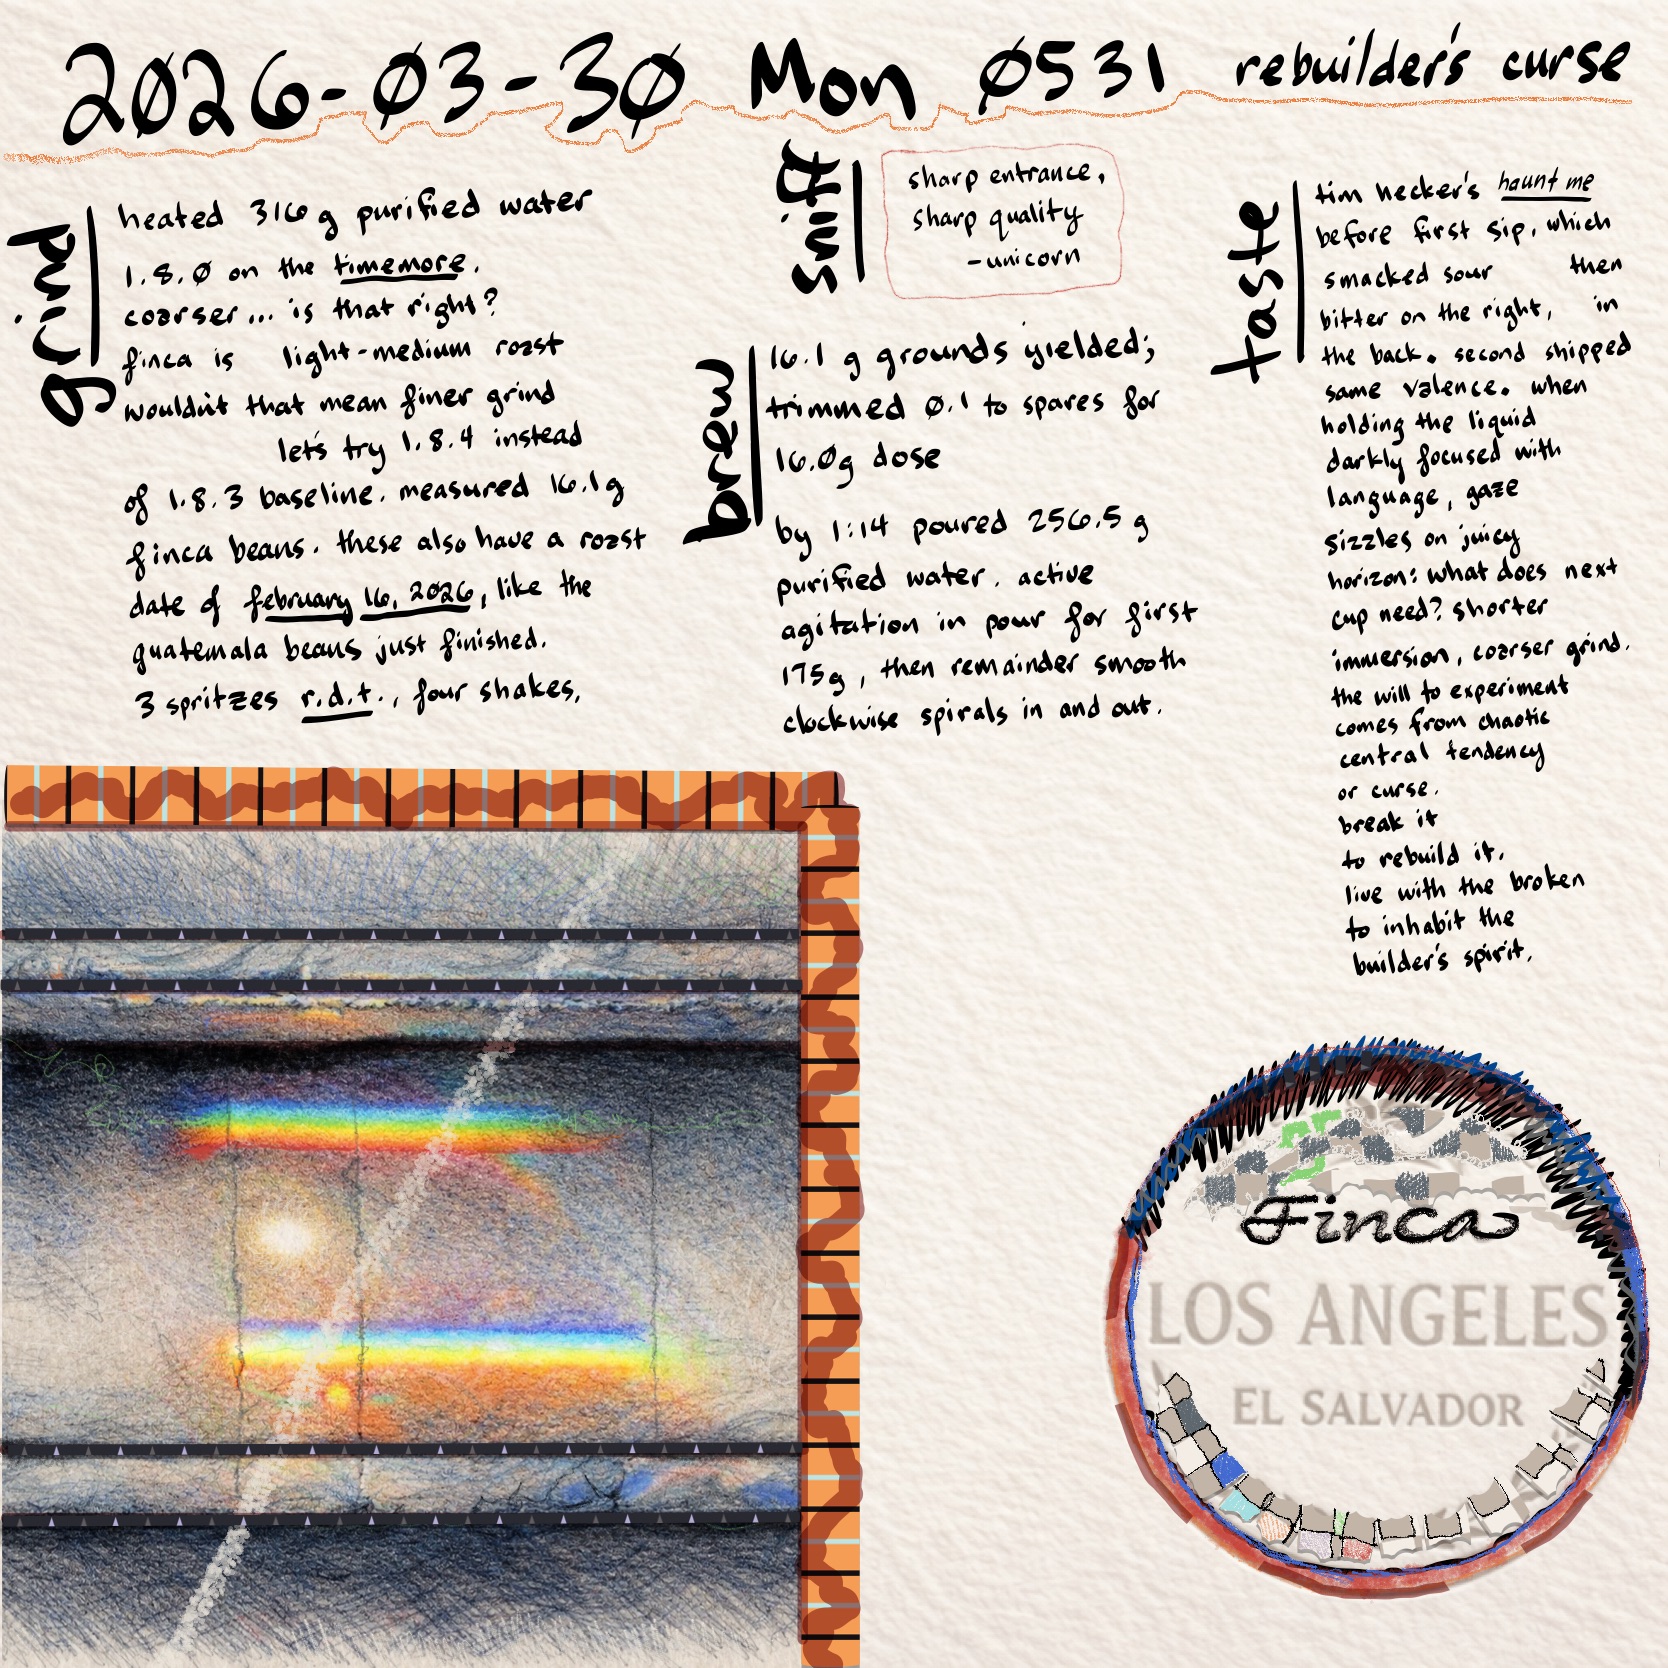 2026-03-30 Mon 0531 rebuilder's curse
grind
heated 316 g purified water
1.8.0 on the timemore.
coarser... is that right?
finca is light-medium roast
wouldn't that mean finer grind
let's try 1.8.4 instead
of 1.8.3 baseline. measured 16.1g
finca beans. these also have a roast
date of february 16, 2026, like the
guatemala beans just finished.
3 spritzes r.d.t., four shakes,
sniff
sharp entrance,
sharp quality
-unicorn
brew
16.1 g grounds yielded;
trimmed 0.1 to spares for
16.0g dose
by 1:14 poured 256.5 g
purified water. active
agitation in pour for first
175g, then remainder smooth
clockwise spirals in and out.
taste
tim hecker's haunt me
before first sip, which
smacked sour then
bitter on the right, in
the back. second shipped
same valence. when
holding the liquid
darkly focused with
language, gaze
sizzles on juicy
horizon: what does next
cup need? shorter
immersion, coarser grind.
the will to experiment
comes from chaotic
central tendency
or curse.
break it
to rebuild it.
live with the broken
to inhabit the
builder's spirit.
Finca
LOS ANGELES
EL SALVADOR